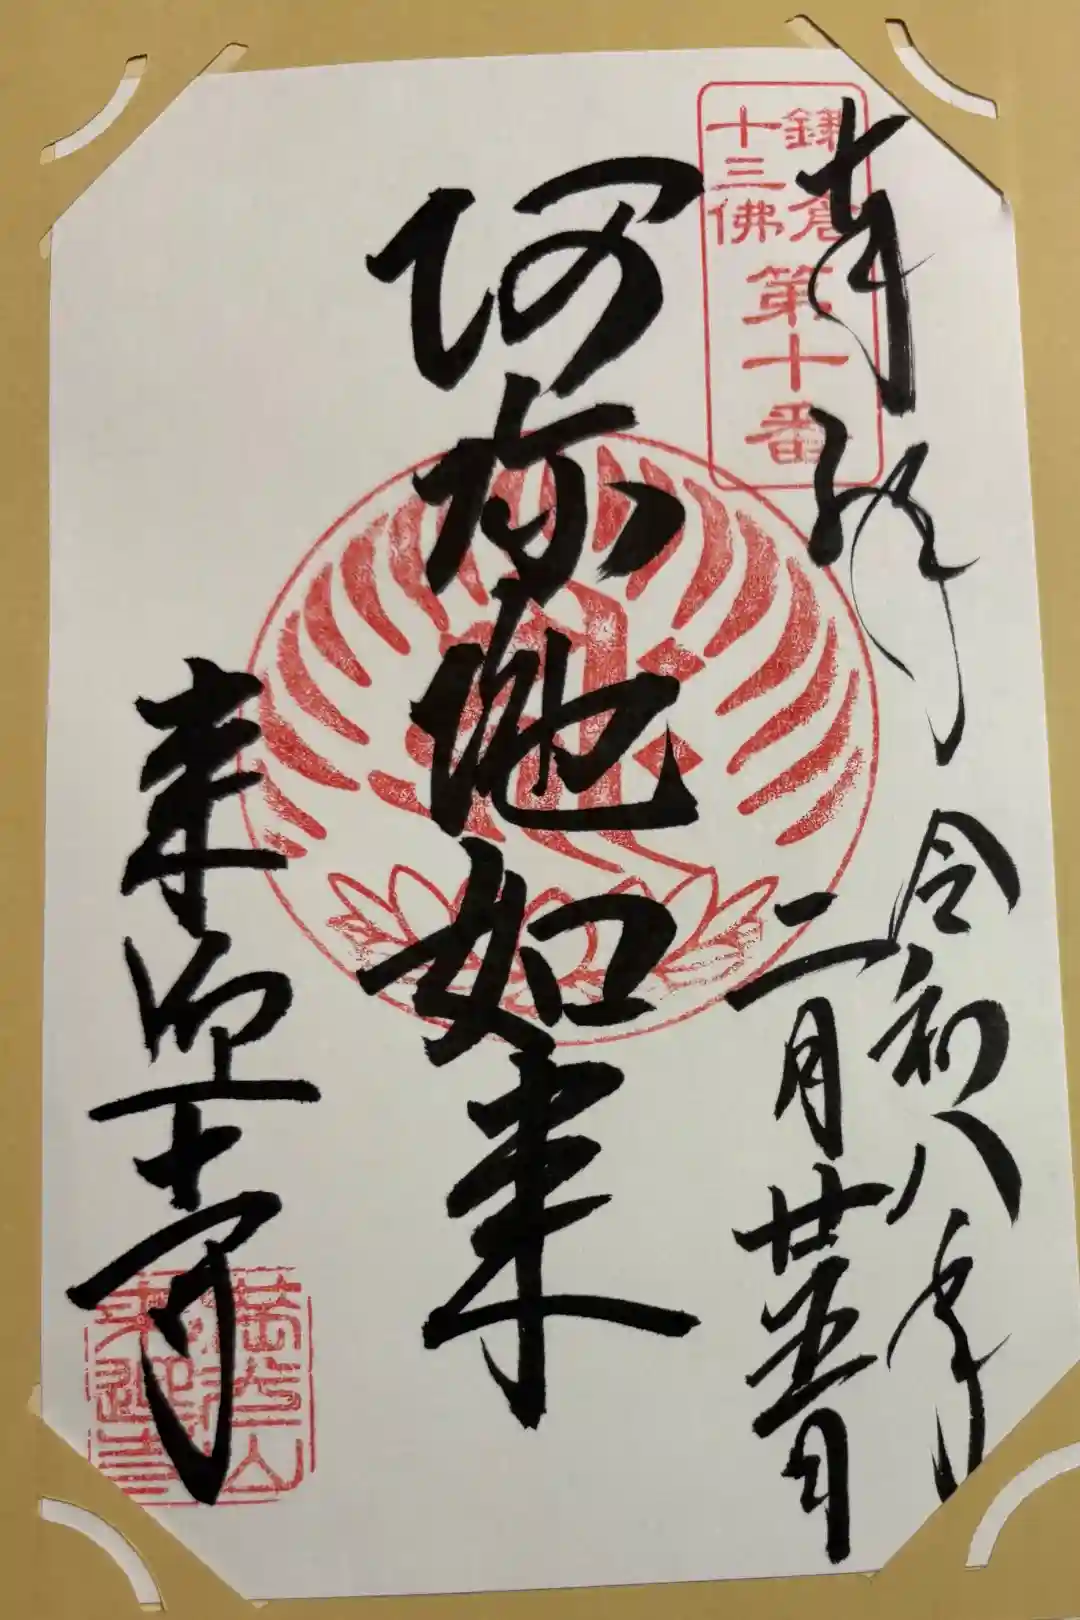 奉拝
令和八年
二月廿五日
鎌倉
十三佛
第十番
阿弥陀如来
来迎寺
満光山
来迎寺